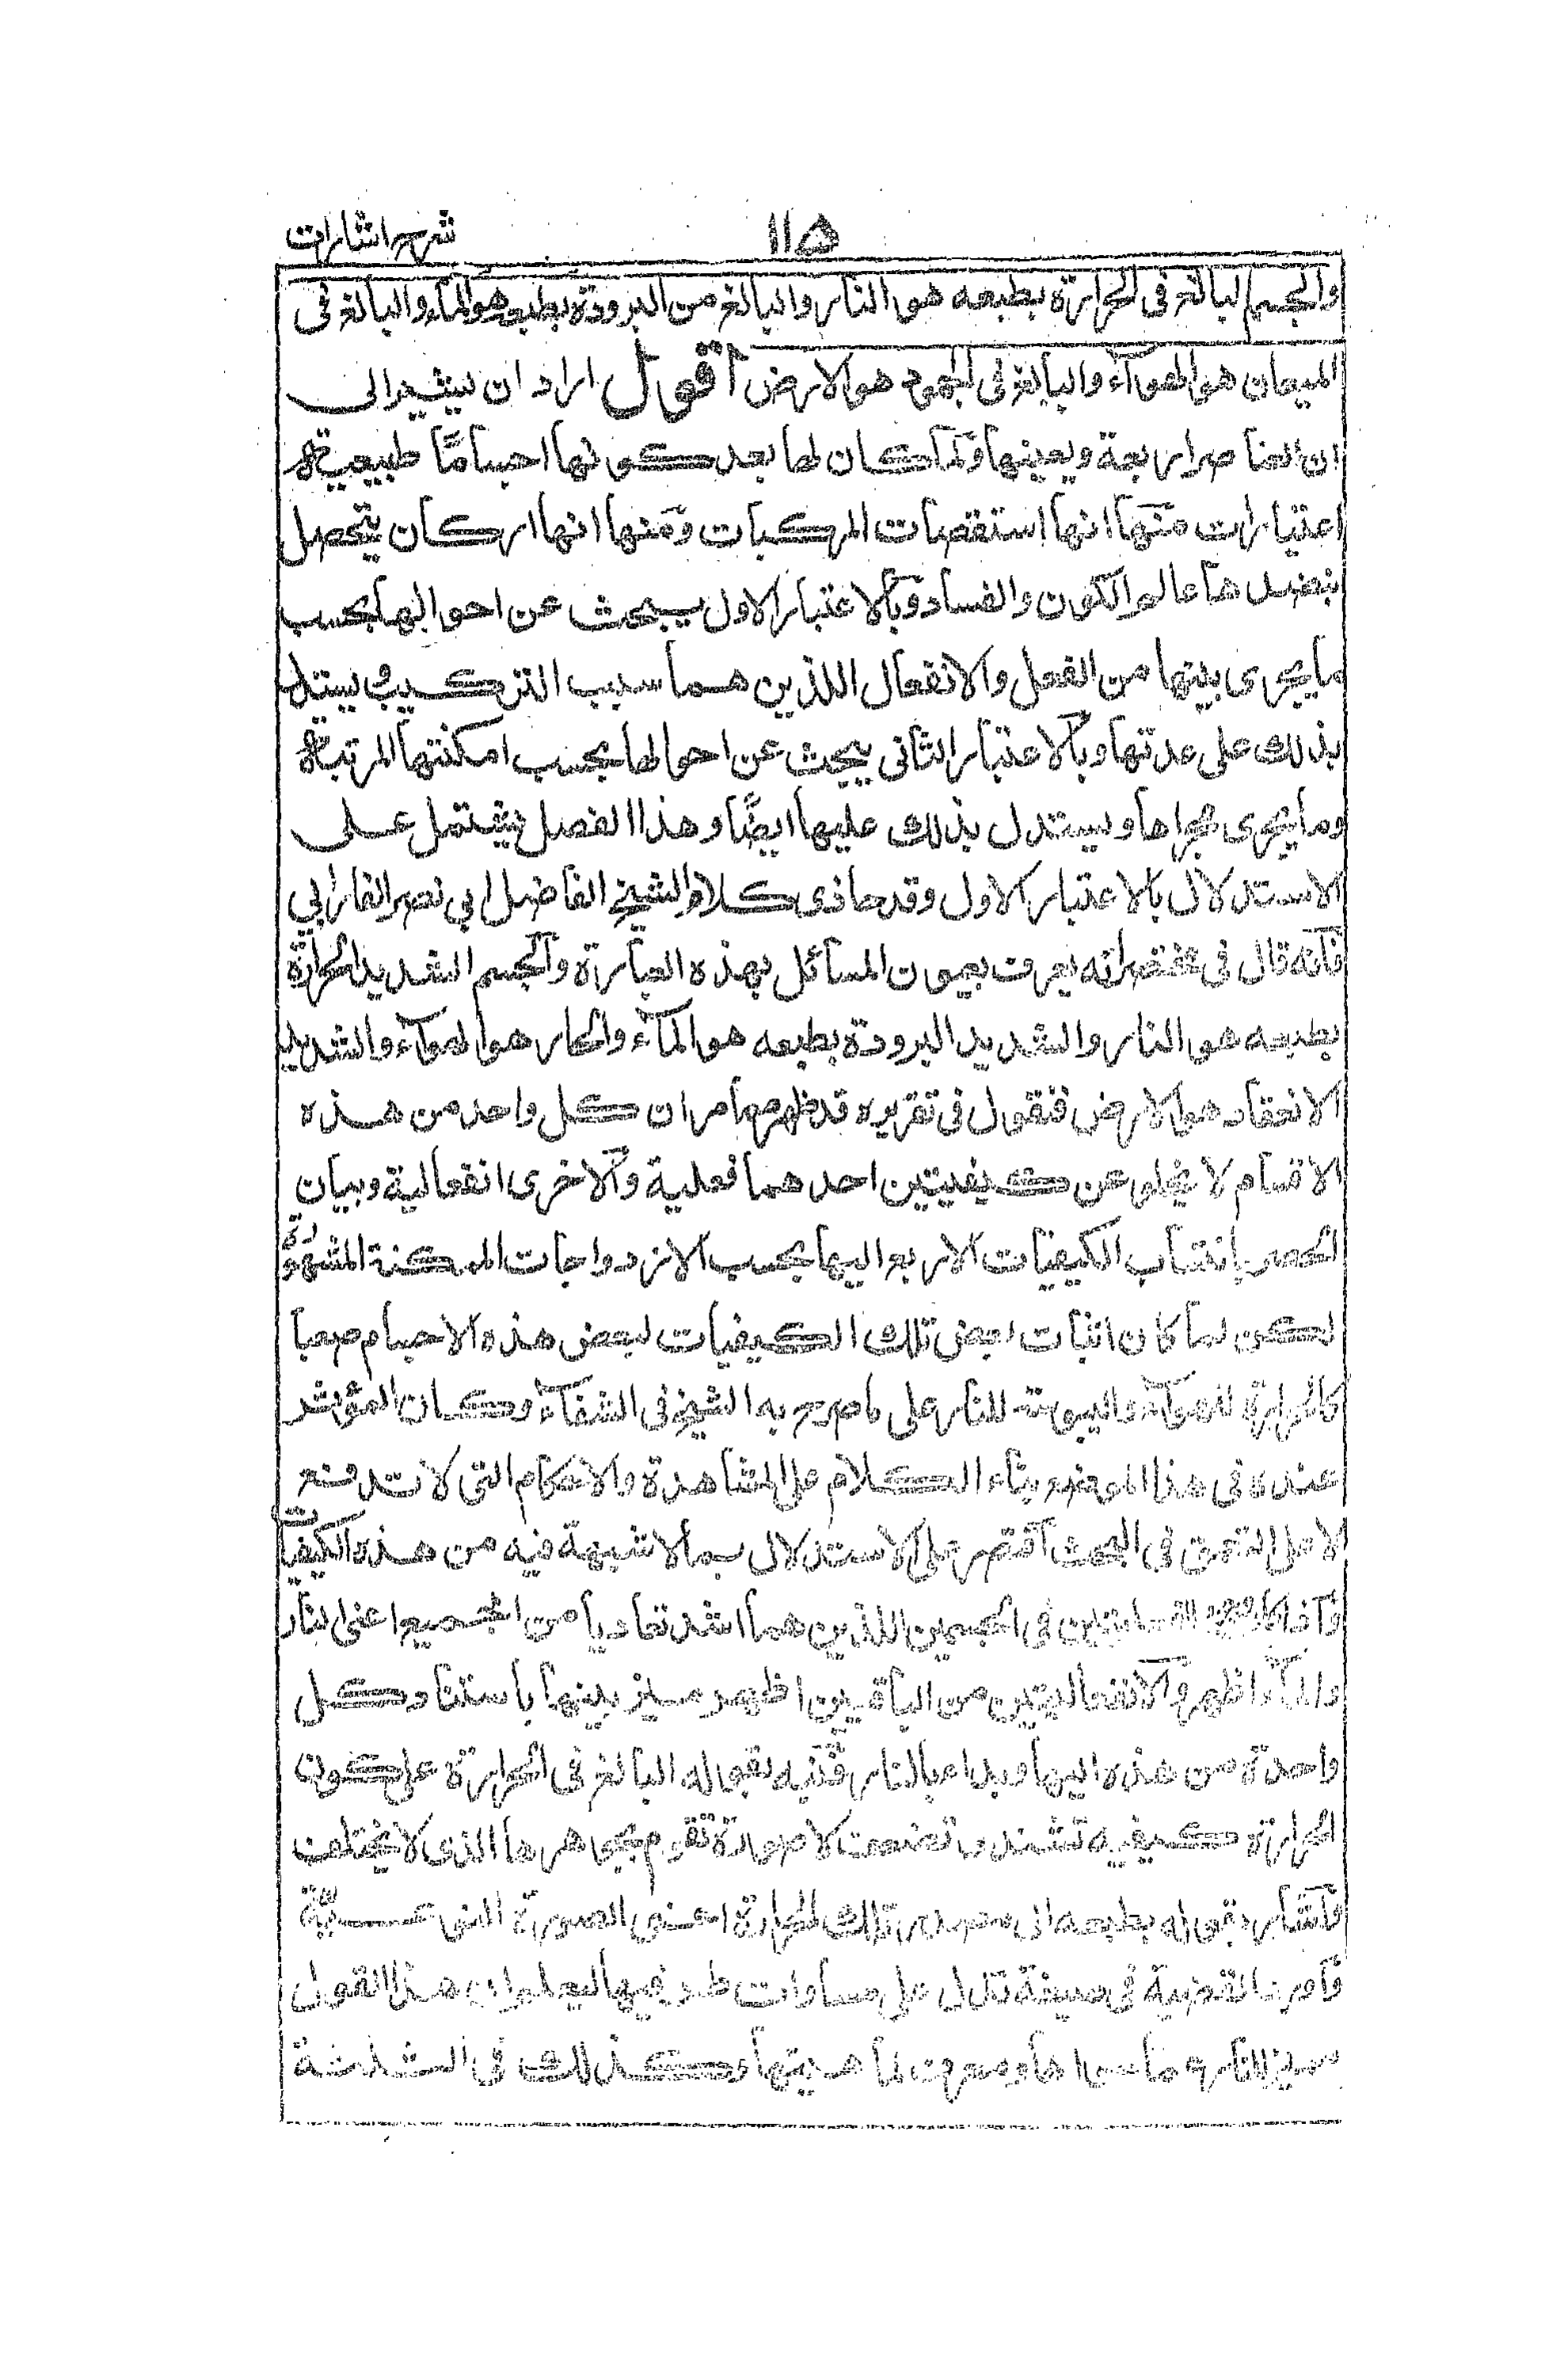 شرح اشارات
١١۵
والجسم البالغ فى الحرارة بطبعه هو النار والبالغ من البرودة بطبعه هو الماء والبالغ فى
الميعان هو الهوآء والبالغ فى الجمود هو الارض اقول اراد ان يشير الى
ان العناصر اربعة ويعينها ولما كان لها بعد كونها اجساما طبيعية
اعتبارات منها انها استقصات المركبات ومنها انها اركان يتحصل
بنضدها عالم الكون والفساد وبالاعتبار الاول يبحث عن احوالها بحسب
ما يجرى بينها من الفعل والانفعال اللذين هما سبب التركيب ويستدل
بذلك على عدتها وبالاعتبار الثانى يبحث عن احوالها بحسب امكنتها المرتبة
وما يجرى مجراها ويستدل بذلك عليها ايضًا وهذا الفصل يشتمل على
الاستدلال بالاعتبار الاول وقد حاذى كلام الشيخ الفاضل ابي نصر الفارابي
فانه قال فى مختصر له يعرف بعيون المسائل بهذه العبارة والجسم الشديد الحرارة
بطبعه هو النار والشديد البرودة بطبعه هو المآء والحار هو الهوآء والشديد
الانعقاد هو الارض فنقول فى تقريره قد ظهر مما مر ان كل واحد من هذه
الاقسام لا يخلو عن كيفيتين احدهما فعلية والاخرى انفعالية وبيان
الحصر بانتساب الكيفيات الاربع اليها بحسب الازدواجات الممكنة المشهورة
لكن لما كان اثبات بعض تلك الكيفيات لبعض هذه الاجسام صعبا
كالحرارة للهوآء واليبوسة للنار على ما صرح به الشيخ فى الشفآء وكان المؤثر
عنده فى هذا الموضع بناء الكلام على المشاهدة والاحكام التى لا تدفع
لاهل التعمق فى البحث اقتصر على الاستدلال بما لا شبهة فيه من هذه الكيفيات
فى الجسمين اللذين هما اشد تعاديا من الجميع اعنى النار
والمآء اظهر والانفعاليتين من الباقيين اظهر ميز بينها باستناد كل
واحدة من هذه اليها وبداء بالنار فنبه بقوله البالغ فى الحرارة على كون
الحرارة كيفيه تشتد وتضعف لا صورة تقوم بجوهرها الذى لا يختلف
فاشار بقوله بطبعه الى مصدر تلك الحرارة اعنى الصورة النوعية
واورد القضية فى صيغة تدل على مساوات طرفيها ليعلم ان هذا القول
مميز للنار عما سواها ومعرف لما هيتها وكذلك فى الثلثة